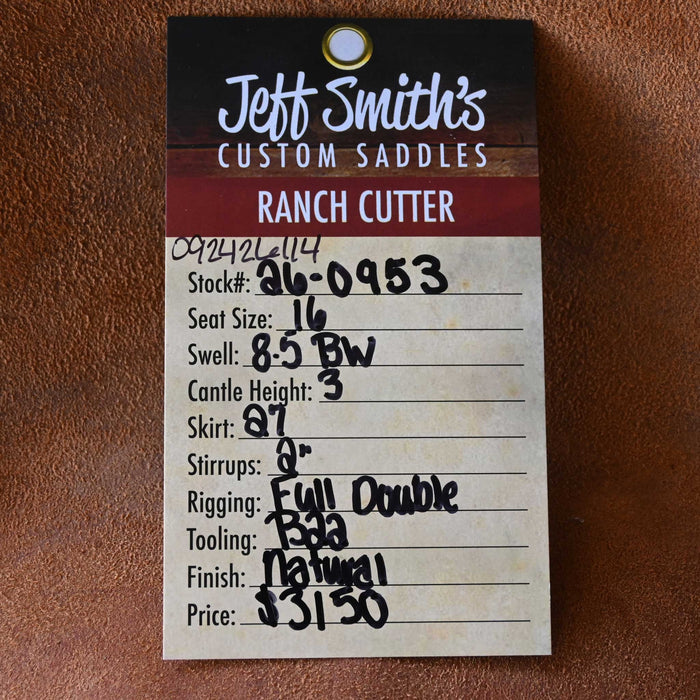 Jeff Smith's
CUSTOM SADDLES
RANCH CUTTER
092426114
Stock#: 26-0953
Seat Size: 16
Swell: 8.5 BW
Cantle Height: 3
Skirt: 27
Stirrups: 2"
Rigging: Full Double
Tooling: B22
Finish: Natural
Price: $3150